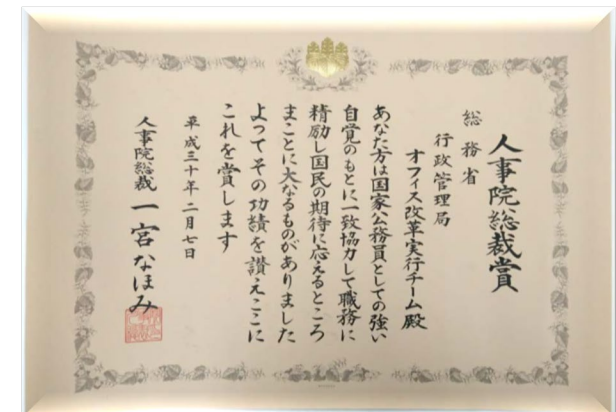 人事院総裁賞
総務省
行政管理局
オフィス改革実行チーム殿
あなた方は国家公務員としての強い
自覚のもとに一致協力して職務に
精励し国民の期待に応えるところ
まことに大なるものがありました
よってその功績を讃えここに
これを賞します
平成三十年二月七日
人事院総裁 一宮なほみ